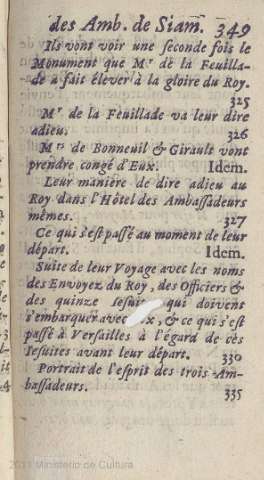 des Amb. de Siam. 349
Ils vont voir une seconde fois le
Monument que Mr de la Feuilla-
de a fait élever à la gloire du Roy.
325
Mr de la Feuillade va leur dire
adieu. 326
Mrs de Bonneuil & Girault vont
prendre congé d'Eux. Idem.
Leur maniére de dire adieu au
Roy dans l'Hôtel des Ambassadeurs
mêmes. 327
Ce qui s'est passé au moment de leur
départ. Idem.
Suite de leur Voyage avec les noms
des Envoyez du Roy, des Officiers &
des quinze Jesuites qui doivent
s'embarquer avec & ce qui s'est
passé à Versailles à l'égard de ces
Jesuites avant leur départ. 330
Portrait de l'esprit des trois Am-
bassadeurs. 335
Ministerio de Cultura